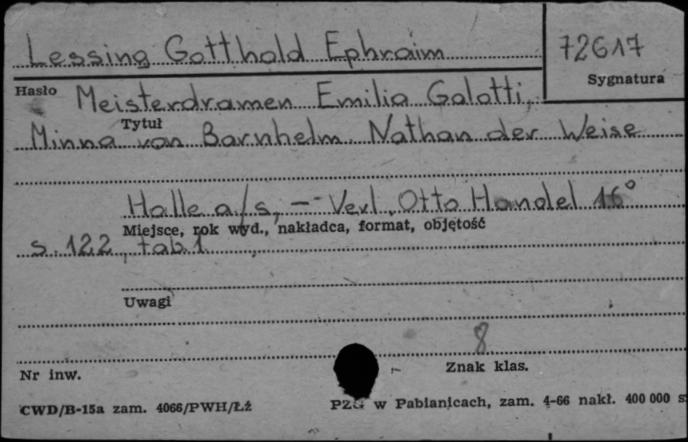 Lessing Gotthold Ephraim 72617
Hasło Sygnatura
Meisterdramen Emilia Galotti,
Tytuł
Minna von Barnhelm. Nathan der Weise
Halle a/s, – Verl. Otto Handel 16°
Miejsce, rok wyd., nakładca, format, objętość
s. 122, tab 1
Uwagi
8
Nr inw. Znak klas.
CWD/B-15a zam. 4066/PWH/Łź PZG w Pabianicach, zam. 4-66 nakł. 400 000 s